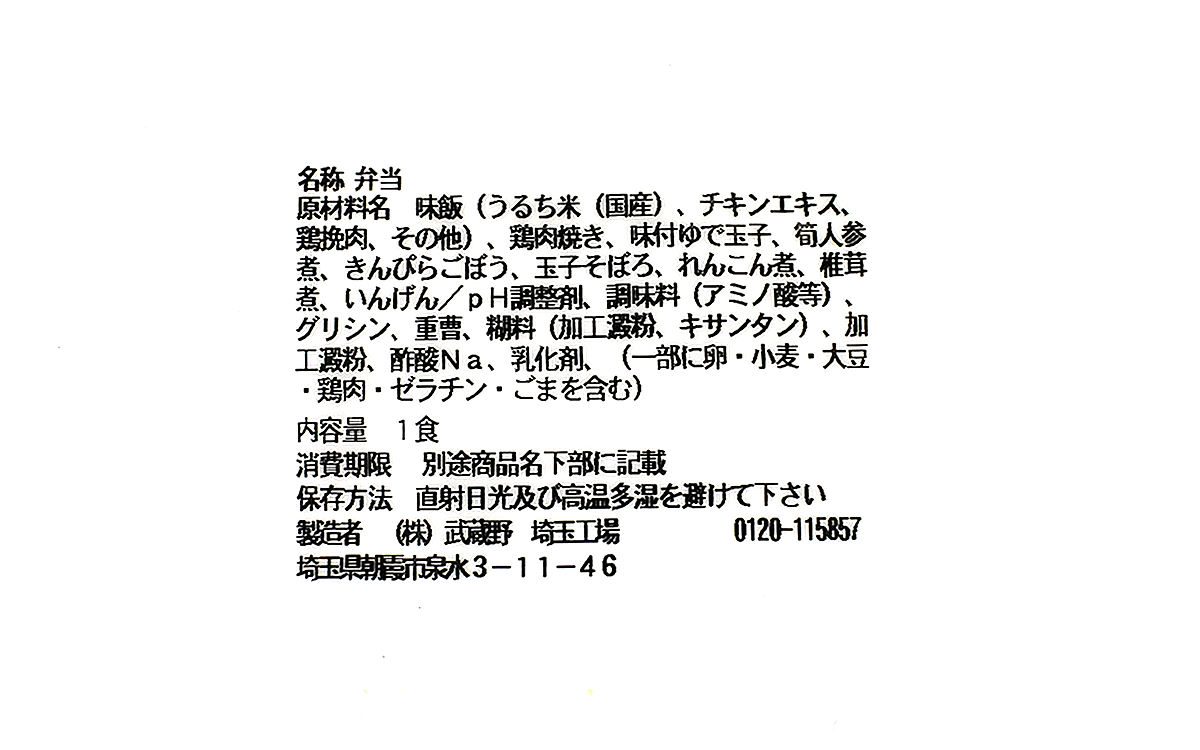 名称 弁当
原材料名　味飯（うるち米（国産）、チキンエキス、
鶏挽肉、その他）、鶏肉焼き、味付ゆで玉子、筍人参
煮、きんぴらごぼう、玉子そぼろ、れんこん煮、椎茸
煮、いんげん／ｐＨ調整剤、調味料（アミノ酸等）、
グリシン、重曹、糊料（加工澱粉、キサンタン）、加
工澱粉、酢酸Ｎａ、乳化剤、（一部に卵・小麦・大豆
・鶏肉・ゼラチン・ごまを含む）
内容量　１食
消費期限　別途商品名下部に記載
保存方法　直射日光及び高温多湿を避けて下さい
製造者　（株）武蔵野　埼玉工場　0120-115857
埼玉県朝霞市泉水３－１１－４６